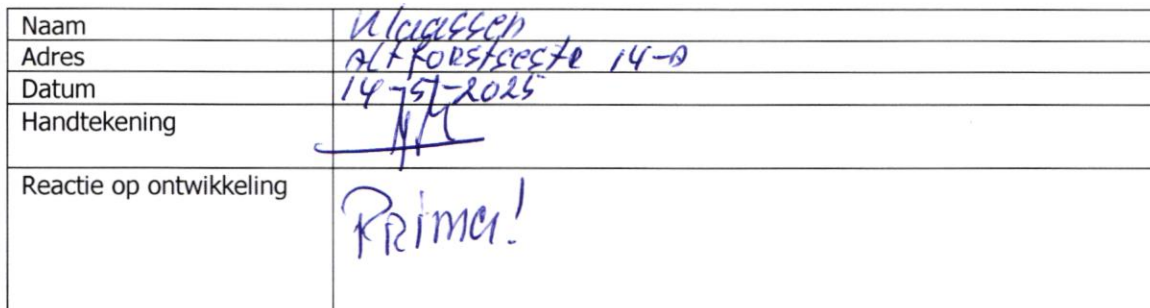 Naam Klaassen
Adres 14-A
Datum 14-5-2025
Handtekening
Reactie op ontwikkeling Prima!